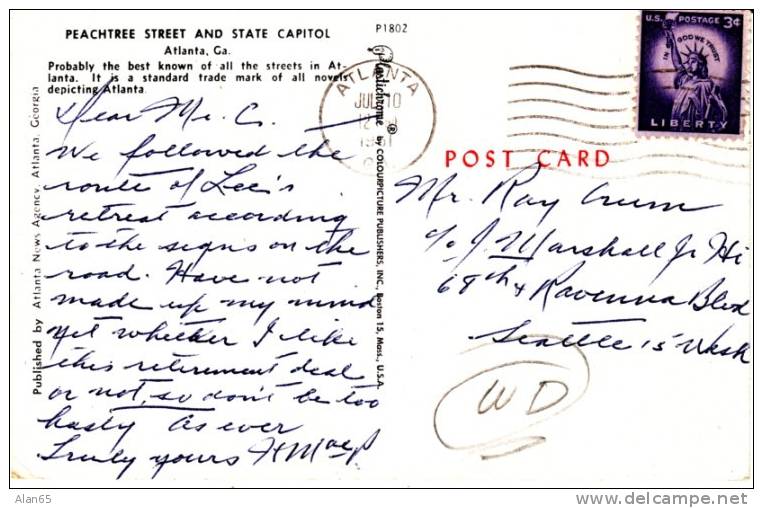 PEACHTREE STREET AND STATE CAPITOL
Atlanta, Ga.
Probably the best known of all the streets in At-
lanta. It is a standard trade mark of all novels
depicting Atlanta.
P1802
Dear Mr. C.
We followed the
route of Lee's
retreat according
to the signs on the
road. Have not
made up my mind
yet whether I like
this retirement deal
or not, so don't be too
hasty As ever
Truly yours
Published by Atlanta News Agency, Atlanta, Georgia
Plastichrome ® by COLOURPICTURE PUBLISHERS, INC., Boston 15, Mass., U.S.A.
ATLANTA
JUL 10
1961
U.S. POSTAGE 3¢
IN GOD WE TRUST
LIBERTY
POST CARD
Mr. Ray Crum
c/o J. Marshall Jr Hi
68th & Ravenna Blvd
Seattle 15 Wash
WD
Alan65
delcampe.net